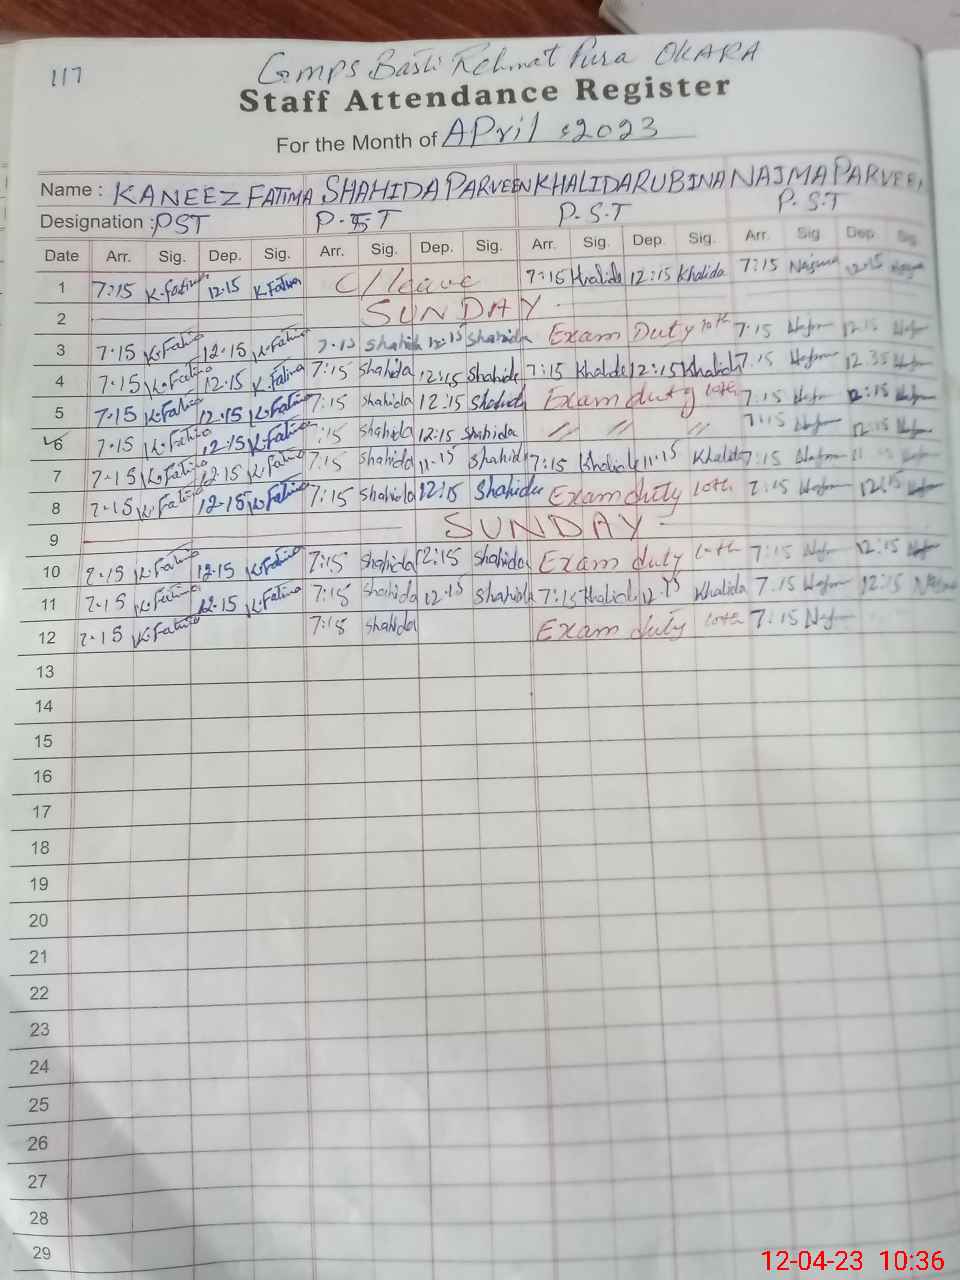 117
GMPS Basti Rehmat Pura OKARA
Staff Attendance Register
For the Month of APril 2023
Name : KANEEZ FATIMA SHAHIDA PARVEEN KHALIDA RUBINA NAJMA PARVEEN
Designation : PST P.S.T P.S.T P.S.T
Date Arr. Sig. Dep. Sig. Arr. Sig. Dep. Sig. Arr. Sig. Dep. Sig. Arr. Sig Dep. Sig
1 7:15 K.Fatima 12.15 K.Fatima C/leave 7:15 Khalida 12:15 Khalida 7:15 Najma 12:15
2 SUNDAY
3 7.15 K.Fatima 12.15 K.Fatima 7.15 Shahida 12:15 Shahida Exam Duty 10th 7.15 12:15
4 7.15 K.Fatima 12.15 K.Fatima 7:15 Shahida 12:15 Shahida 7:15 Khalida 12:15 Khalida 7:15 12.35
5 7.15 K.Fatima 12.15 K.Fatima 7:15 Shahida 12:15 Shahida Exam duty 10th 7:15 12:15
6 7.15 K.Fatima 12.15 K.Fatima 7:15 Shahida 12:15 Shahida // // // 7:15 12:15
7 7.15 K.Fatima 12.15 K.Fatima 7:15 Shahida 11.15 Shahida 7:15 Khalida 11.15 Khalida 7:15 11
8 7.15 K.Fatima 12.15 K.Fatima 7:15 Shahida 12:15 Shahida Exam duty 10th 7:15 12:15
9 SUNDAY
10 7.15 K.Fatima 12.15 K.Fatima 7:15 Shahida 12:15 Shahida Exam duty 10th 7:15 12:15
11 7.15 K.Fatima 12.15 K.Fatima 7:15 Shahida 12.15 Shahida 7:15 Khalida 12.15 Khalida 7.15 12:15 Najma
12 7.15 K.Fatima 7:15 Shahida Exam duty 10th 7:15
13
14
15
16
17
18
19
20
21
22
23
24
25
26
27
28
29
12-04-23 10:36